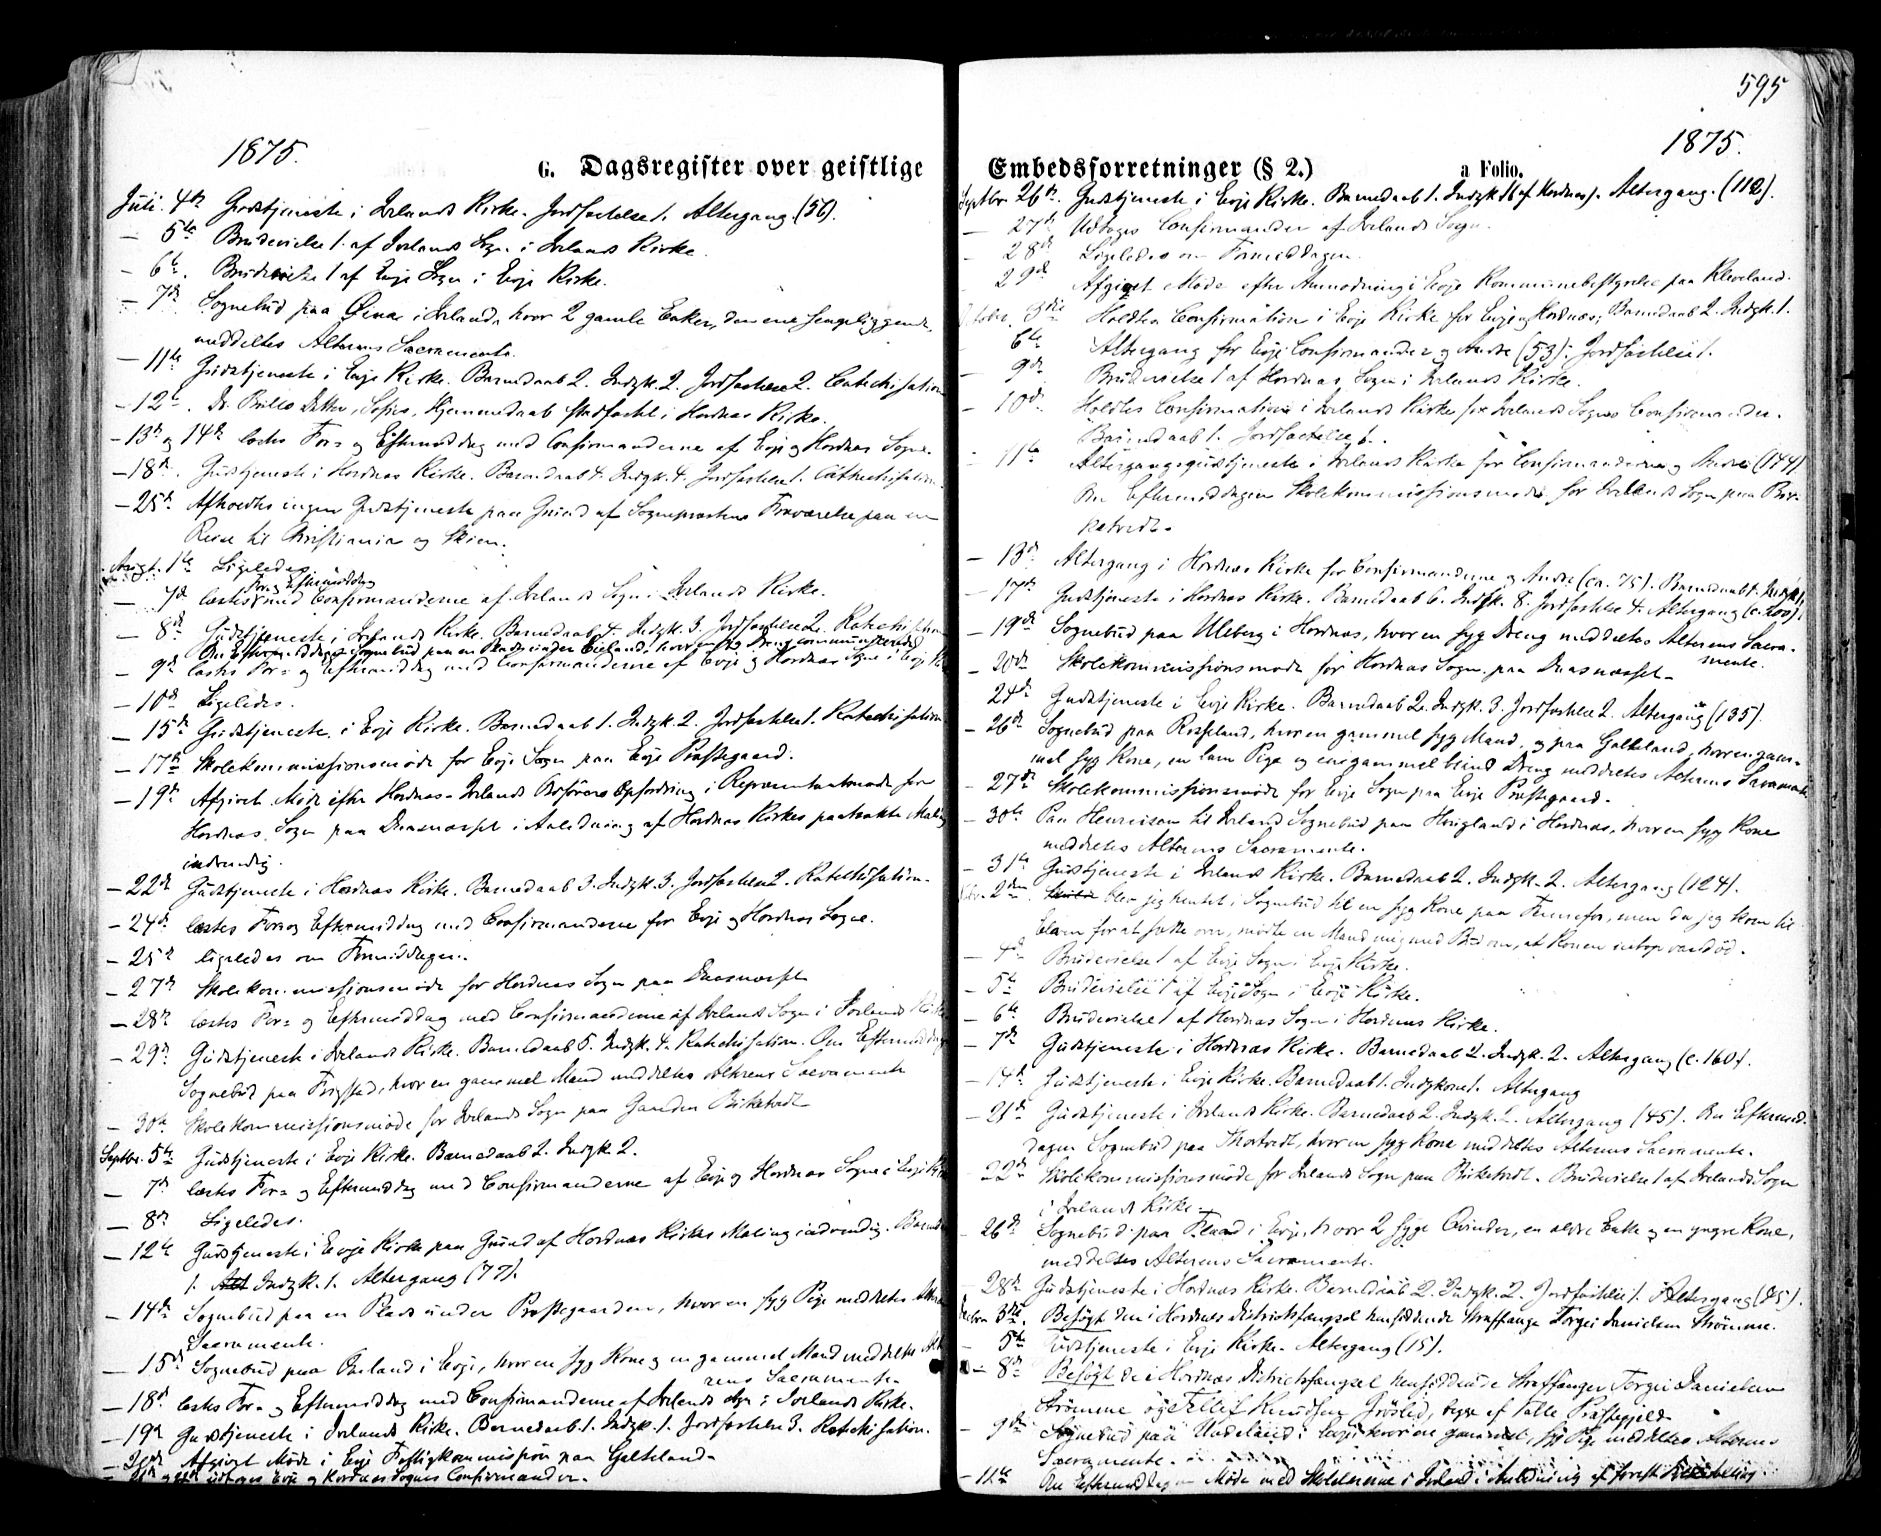 1875.
G. Dagsregister over geistlige
Juli. 4de Gudstjeneste i Ivlands Kirke. Jordfæstelse 1. Altergang (56).
— 5te Brudevielse 1 af Ivlands Sogn i Ivlands Kirke.
— 6te. Brudevielse 1 af Evje Sogn i Evje Kirke.
— 7de Sognebud paa i Ivland, hvor 2 gamle Enker, den ene sengeliggende,
meddeltes Alterens Sacramente.
— 11te Gudstjeneste i Evje Kirke. Barnedaab 2. Indgk. 2. Jordfæstelse 2. Catechisation
— 12te. Dr. Datter, Hjemmedaab stadfæstet i Hordnæs Kirke.
— 13de og 14de læstes For- og Eftermiddag med Confirmanderne af Evje og Hordnæs Sogne.
— 18de. Gudstjeneste i Hordnæs Kirke. Barnedaab 4. Indgk. 4. Jordfæstelse 1. Cathechisation.
— 25de Afholdtes ingen Gudstjeneste paa Grund af Sognepræstens Fraværelse paa en
Reise til Christiania og Skien.
Augt. 1te Ligeledes.
For- og Eftermiddag
— 7de læstes med Confirmanderne af Ivlands Sogn i Ivlands Kirke.
— 8de Gudstjeneste i Ivlands Kirke. Barnedaab 4. Indgk. 3. Jordfæstelse 2. Katechisation
Om Eftermiddagen Sognebud paa en Plads under hvor en syg Dreng communicerede
— 9de læstes For- og Eftermiddag med Confirmanderne af Evje og Hordnæs Sogne i Evje
— 10de Ligeledes.
— 15de Gudstjeneste i Evje Kirke. Barnedaab 1. Indgk. 2. Jordfæstelse 1. Katechisation
— 17de Skolekommissionsmøde for Evje Sogn paa Evje Præstegaard.
— 19de Afgivet Møde efter Hordnæs-Ivlands Ordførers Opfordring i Repræsentantmøde for
Hordnæs Sogn paa Daasnæsset i Anledning af Hordnæs Kirkes paatænkte Maling
indvendig.
— 22de Gudstjeneste i Hordnæs Kirke. Barnedaab 3. Indgk. 3. Jordfæstelse 2. Katechisation.
— 24de læstes For og Eftermiddag med Confirmanderne for Evje og Hordnæs Sogne.
— 25de ligeledes om Formiddagen.
— 27de Skolekommissionsmøde for Hordnæs Sogn paa Daasnæsset
— 28de læstes For- og Eftermiddag med Confirmanderne af Ivlands Sogn i Ivlands Kirke
— 29de Gudstjeneste i Ivlands Kirke. Barnedaab 5. Indgk. 4. Katechisation. Om Eftermiddagen
Sognebud paa Frigstad, hvor en gammel Mand meddeltes Alterens Sacramente
— 30te Skolekommissionsmøde for Ivlands Sogn paa Gaarden Birketvedt
Septbr. 5te Gudstjeneste i Evje Kirke. Barnedaab 2. Indgk. 2.
— 7de læstes For- og Eftermiddag med Confirmanderne af Evje og Hordnæs Sogne i Evje
— 8de Ligeledes.
— 12te Gudstjeneste i Evje Kirke paa Grund af Hordnæs Kirkes Maling indvendig.
1. Indgk. 1. Altergang (77).
— 14de Sognebud paa en Plads under Præstegaarden, hvor en syg Pige meddeltes
Sacramente.
— 15de Sognebud paa i Evje, hvor en syg Kone og en gammel Mand meddeltes
rens Sacramente.
— 18de læstes For- og Eftermiddag med Confirmanderne af Ivlands Sogn i Ivlands Kirke.
— 19de Gudstjeneste i Ivlands Kirke. Barnedaab 1. Indgk. 1. Jordfæstelse 3. Katechisation.
— 20de Afgivet Møde i Evje Fattigkommission paa Galteland.
— 21de og 22de udtoges Evje og Hordnæs Sognes Confirmander.
595
1875.
Embedsforretninger (§ 2.) a Folio.
Septbr. 26de. Gudstjeneste i Evje Kirke. Barnedaab 1. Indgk. 1 (af Hordnæs). Altergang. (112).
— 27de Udtoges Confirmander af Ivlands Sogn.
— 28de Ligeledes om Formiddagen.
29de Afgivet Møde efter Anmodning i Evje Kommunebestyrelse paa Kleveland.
Octobr. 3die Holdtes Confirmation i Evje Kirke for Evje og Hordnæs; Barnedaab 2. Indgk. 1.
6te Altergang for Evje Confirmander og Andre (53). Jordfæstelse 1.
— 9de Brudevielse 1 af Hordnæs Sogn i Ivlands Kirke.
— 10de. Holdtes Confirmation i Ivlands Kirke for Ivlands Sogns Confirmander.
Barnedaab 1. Jordfæstelse 1.
— 11te Altergangsgudstjeneste i Ivlands Kirke for Confirmanderne og Andre (144)
Om Eftermiddagen Skolekommissionsmøde for Ivlands Sogn paa Bir-
ketvedt.
— 13de Altergang i Hordnæs Kirke for Confirmanderne og Andre (ca. 75). Barnedaab 1. Indgk. 1
— 17de Gudstjeneste i Hordnæs Kirke. Barnedaab 6. Indgk. 8. Jordfæstelse 4. Altergang (c. 200).
— 19de Sognebud paa Uleberg i Hordnæs, hvor en syg Dreng meddeltes Alterens Sacra-
mente.
— 20de Skolekommissionsmøde for Hordnæs Sogn paa Daasnæsset.
24de Gudstjeneste i Evje Kirke. Barnedaab 2. Indgk. 3. Jordfæstelse 2. Altergang (135).
— 26de Sognebud paa Rosseland, hvor en gammel syg Mand, og paa Galteland, hvor en gam-
mel syg Kone, en lam Pige og en gammel blind Dreng meddeltes Alterens Sacramente
— 27de Skolekommissionsmøde for Evje Sogn paa Evje Præstegaard.
— 30te Paa Henreisen til Ivland Sognebud paa Haugland i Hordnæs, hvor en syg Kone
meddeltes Alterens Sacramente.
— 31te Gudstjeneste i Ivlands Kirke. Barnedaab 2. Indgk. 2. Altergang (124).
2den. blev jeg hentet i Sognebud til en syg Kone paa Fennefos, men da jeg kom til
Elven for at sætte over, mødte en Mand mig med Bud om, at Konen netop var død.
— 4de Brudevielse 1 af Evje Sogn i Evje Kirke.
— 5te Brudevielse 1 af Evje Sogn i Evje Kirke.
— 6te Brudevielse 1 af Hordnæs Sogn i Hordnæs Kirke.
— 7de Gudstjeneste i Hordnæs Kirke. Barnedaab 2. Indgk. 2. Altergang (c. 160).
— 14de Gudstjeneste i Evje Kirke. Barnedaab 1. Indgkone 1. Altergang
— 21de Gudstjeneste i Ivlands Kirke. Barnedaab 2. Indgk. 2. Altergang (45). Om Eftermid-
dagen Sognebud paa hvor en syg Kone meddeltes Alterens Sacramente.
— 22de Skolekommissionsmøde for Ivlands Sogn paa Birketvedt. Brudevielse 1 af Ivlands Sogn
i Ivlands Kirke.
— 26de Sognebud paa Flaad i Evje, hvor 2 syge Qvinder, en ældre Enke og en yngre Kone,
meddeltes Alterens Sacramente.
— 28de Gudstjeneste i Hordnæs Kirke. Barnedaab 2. Indgk. 2. Jordfæstelse 1. Altergang (45).
3die. Besøgt den i Hordnæs Distriktsfængsel hensiddende Straffange Torgei Danielsen Strømme.
— 5te Gudstjeneste i Evje Kirke. Altergang (15).
— 8de Besøgt de i Hordnæs Districtsfængsel hensiddende Straffanger Torgei Danielsen
Strømme og Tellef Knudsen begge af Præstegjeld.
— 9de Sognebud paa i Evje hvor en gammel, syg Pige meddeltes Alterens
Sacramente.
— 11te Om Eftermiddagen Møde med Skolelærerne i Ivland i Anledning af